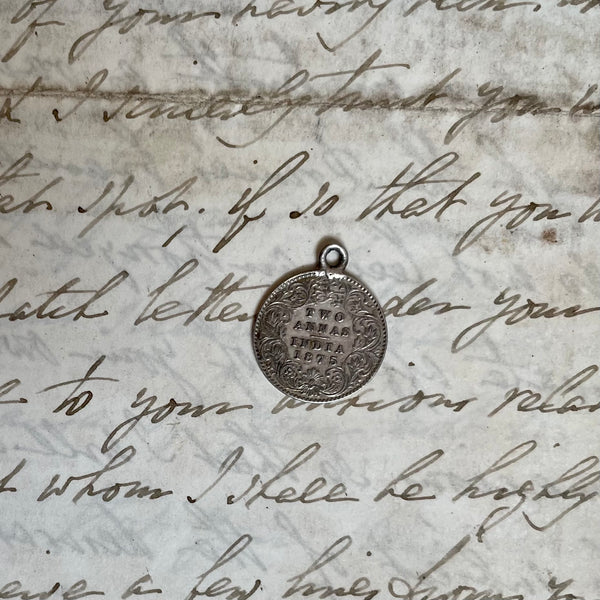 of your having been
I sincerely trust you
spot. if so that you
TWO
ANNAS
INDIA
1875
letter your
to your anxious
whom I shall be highly
a few lines from you